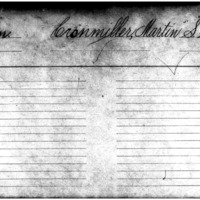 Cronmiller, Martin S